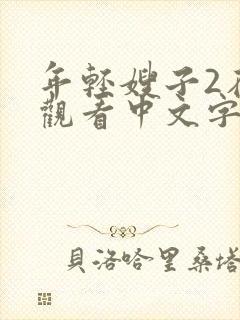 年輕嫂子2在
觀看中文字
貝洛哈里桑塔